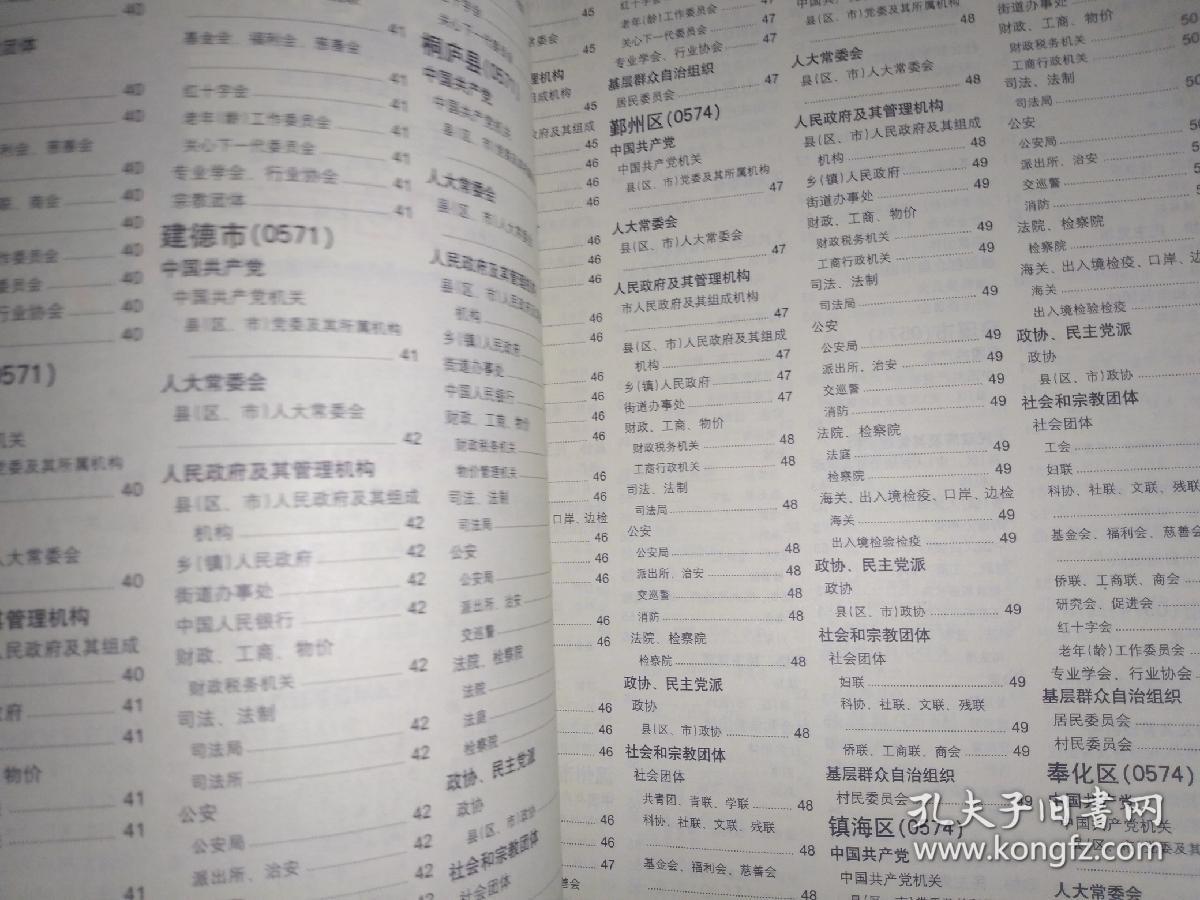 40
团体
40
利会、慈善会
40
联、商会
40
作委员会
40
委员会
40
行业协会
40
40
0571)
机关
党委及其所属机构
40
人大常委会
40
其管理机构
人民政府及其组成
40
府
41
41
物价
41
41
41
41
基金会、福利会、慈善会
41
红十字会
41
老年(龄)工作委员会
41
关心下一代委员会
41
专业学会、行业协会
41
宗教团体
41
建德市(0571)
中国共产党
中国共产党机关
县(区、市)党委及其所属机构
41
人大常委会
县(区、市)人大常委会
42
人民政府及其管理机构
县(区、市)人民政府及其组成
机构 42
乡(镇)人民政府 42
街道办事处 42
中国人民银行 42
财政、工商、物价
财政税务机关 42
司法、法制
司法局 42
司法所 42
公安
公安局 42
派出所、治安 42
桐庐县(0571)
中国共产党
中国共产党机关
人大常委会
县(区、市)人大常委会
人民政府及其管理机构
机构
乡(镇)人民政府
街道办事处
中国人民银行
财政、工商、物价
财政税务机关
物价管理机关
司法、法制
司法局
公安
公安局
派出所、治安
交巡警
法院、检察院
法院
法庭
检察院
政协、民主党派
政协
县(区、市)政协
社会和宗教团体
社会团体
45
常委会
45
理机构
组成机构
45
政府及其组成
45
46
46
46
46
46
46
46
46
46
46
46
46
46
46
口岸、边检
46
46
46
46
46
46
46
46
47
善会
红十字会 47
老年(龄)工作委员会 47
关心下一代委员会 47
专业学会、行业协会 47
基层群众自治组织
居民委员会 47
鄞州区(0574)
中国共产党
中国共产党机关
县(区、市)党委及其所属机构
47
人大常委会
县(区、市)人大常委会
47
人民政府及其管理机构
市人民政府及其组成机构
47
县(区、市)人民政府及其组成
机构 47
乡(镇)人民政府 47
街道办事处 47
财政、工商、物价
财政税务机关 48
工商行政机关 48
司法、法制
司法局 48
公安
公安局 48
派出所、治安 48
交巡警 48
消防 48
法院、检察院
检察院 48
政协、民主党派
政协
县(区、市)政协 48
社会和宗教团体
社会团体
共青团、青联、学联 48
科协、社联、文联、残联
48
基金会、福利会、慈善会
48
县(区、市)党委及其所属机构
48
人大常委会
县(区、市)人大常委会
48
人民政府及其管理机构
县(区、市)人民政府及其组成
机构 48
乡(镇)人民政府 49
街道办事处 49
财政、工商、物价
财政税务机关 49
工商行政机关 49
司法、法制
司法局 49
公安
公安局 49
派出所、治安 49
交巡警 49
消防 49
法院、检察院
法庭 49
检察院 49
海关、出入境检疫、口岸、边检
海关 49
出入境检验检疫 49
政协、民主党派
政协
县(区、市)政协 49
社会和宗教团体
社会团体
妇联 49
科协、社联、文联、残联
49
侨联、工商联、商会 49
基层群众自治组织
村民委员会 49
镇海区(0574)
中国共产党
中国共产党机关
街道办事处
财政、工商、物价 50
财政税务机关 50
工商行政机关 50
司法、法制
司法局 50
公安
公安局
派出所、治安
交巡警
消防
法院、检察院
检察院
海关、出入境检疫、口岸、边
海关
出入境检验检疫
政协、民主党派
政协
县(区、市)政协
社会和宗教团体
社会团体
工会
妇联
科协、社联、文联、残联
基金会、福利会、慈善会
侨联、工商联、商会
研究会、促进会
红十字会
老年(龄)工作委员会
专业学会、行业协会
基层群众自治组织
居民委员会
村民委员会
奉化区(0574)
中国共产党
中国共产党机关
人大常委会
孔夫子旧书网
www.kongfz.com